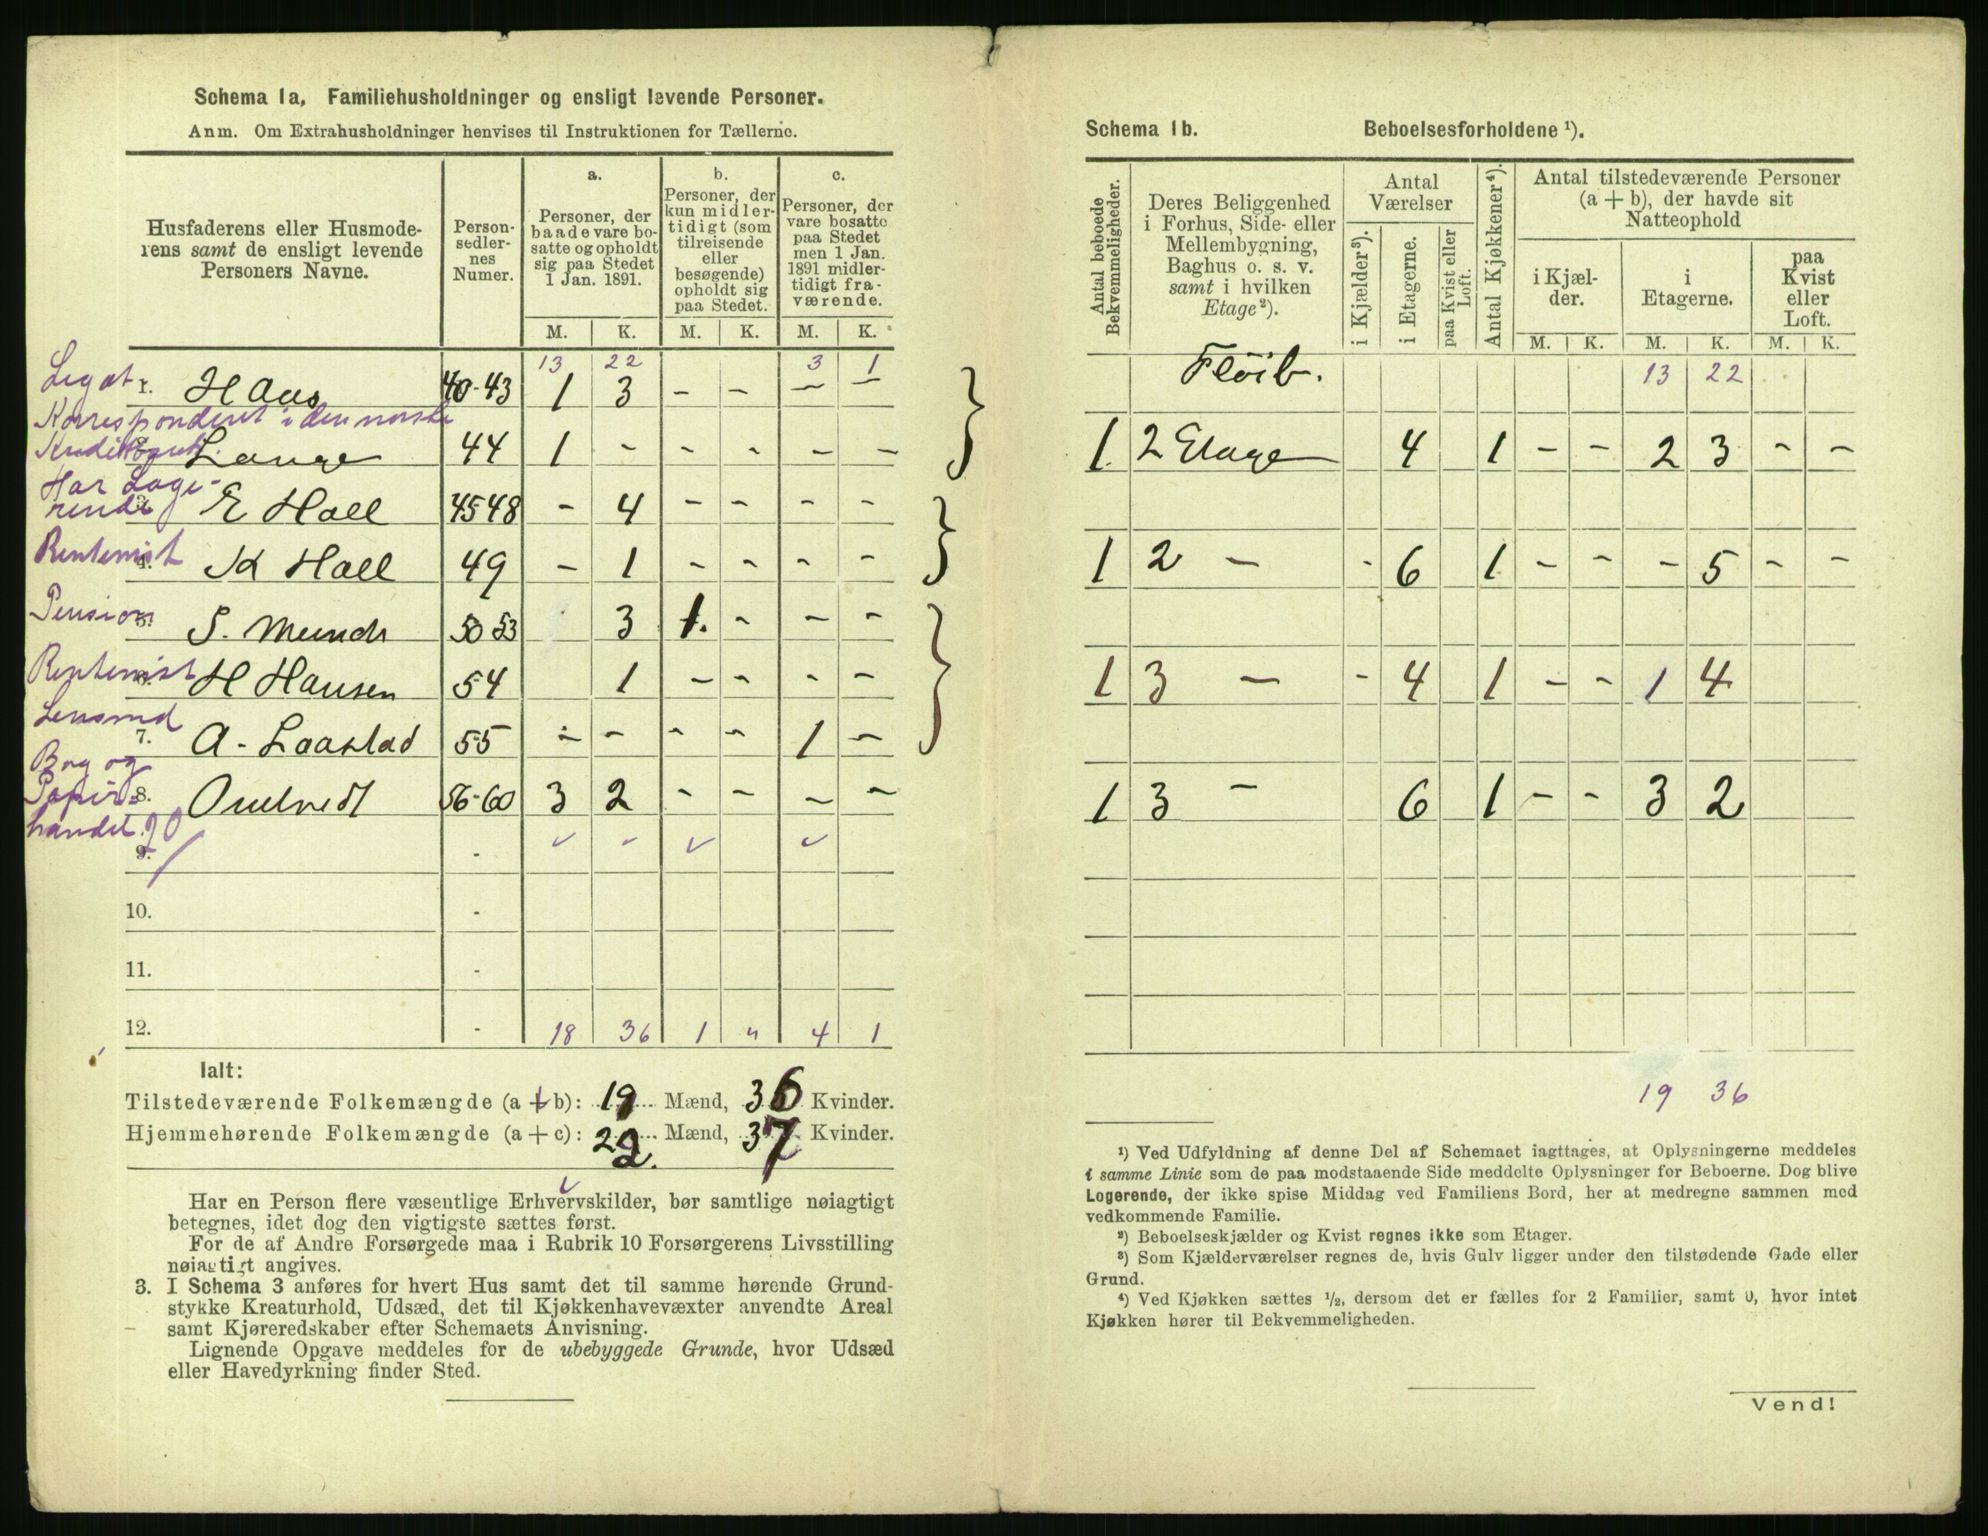 Schema 1a, Familiehusholdninger og ensligt levende Personer.
Anm. Om Extrahusholdninger henvises til Instruktionen for Tællerne.
Husfaderens eller Husmode-
rens samt de ensligt levende
Personers Navne.
Person-
sedler-
nes
Numer.
a.
Personer, der
baade vare bo-
satte og opholdt
sig paa Stedet
1 Jan. 1891.
b.
Personer, der
kun midler-
tidigt (som
tilreisende
eller
besøgende)
opholdt sig
paa Stedet.
c.
Personer, der
vare bosatte
paa Stedet
men 1 Jan.
1891 midler-
tidigt fra-
værende.
M. K. M. K. M. K.
13 22 3 1
Legat
1. H Aas 40-43 1 3 - - - -
Korrespondent i den norske
Kreditbank
Lange 44 1 - - - - -
Har Loge-
rende
E Hall 45 48 - 4 - - - -
Rentenist
4. K Hall 49 - 1 - - - -
Pension
5. S. Munch 50 53 3 1. - - -
Rentenist
6. H Hansen 54 1 - - - -
Lensmd
7. A. Laastad 55 - - - - 1 -
Bog og
Papir-
8. 56-60 3 2 - - - -
handel 90
9. -
10. -
11. -
12. - 18 36 1 " 4 1
Ialt:
Tilstedeværende Folkemængde (a + b): 19 Mænd, 36 Kvinder.
Hjemmehørende Folkemængde (a + c): 22 Mænd, 37 Kvinder.
Har en Person flere væsentlige Erhvervskilder, bør samtlige nøiagtigt
betegnes, idet dog den vigtigste sættes først.
For de af Andre Forsørgede maa i Rubrik 10 Forsørgerens Livsstilling
nøiagtigt angives.
3. I Schema 3 anføres for hvert Hus samt det til samme hørende Grund-
stykke Kreaturhold, Udsæd, det til Kjøkkenhavevæxter anvendte Areal
samt Kjøreredskaber efter Schemaets Anvisning.
Lignende Opgave meddeles for de ubebyggede Grunde, hvor Udsæd
eller Havedyrkning finder Sted.
Schema 1b. Beboelsesforholdene ¹).
Antal beboede
Bekvemmeligheder.
Deres Beliggenhed
i Forhus, Side- eller
Mellembygning,
Baghus o. s. v.
samt i hvilken
Etage ²).
Antal
Værelser
i Kjælder ³).
i Etagerne.
paa Kvist eller
Loft.
Antal Kjøkkener ⁴).
Antal tilstedeværende Personer
(a + b), der havde sit
Natteophold
i Kjæl-
der.
i
Etagerne.
paa
Kvist
eller
Loft.
M. K. M. K. M. K.
Fløib. 13 22
1 2 Etage 4 1 - - 2 3 - -
1 2 - - 6 1 - - - 5 - -
1 3 - - 4 1 - - 1 4
1 3 - 6 1 - - 3 2
19 36
¹) Ved Udfyldning af denne Del af Schemaet iagttages, at Oplysningerne meddeles
i samme Linie som de paa modstaaende Side meddelte Oplysninger for Beboerne. Dog blive
Logerende, der ikke spise Middag ved Familiens Bord, her at medregne sammen med
vedkommende Familie.
²) Beboelseskjælder og Kvist regnes ikke som Etager.
³) Som Kjælderværelser regnes de, hvis Gulv ligger under den tilstødende Gade eller
Grund.
⁴) Ved Kjøkken sættes ½, dersom det er fælles for 2 Familier, samt 0, hvor intet
Kjøkken hører til Bekvemmeligheden.
Vend!